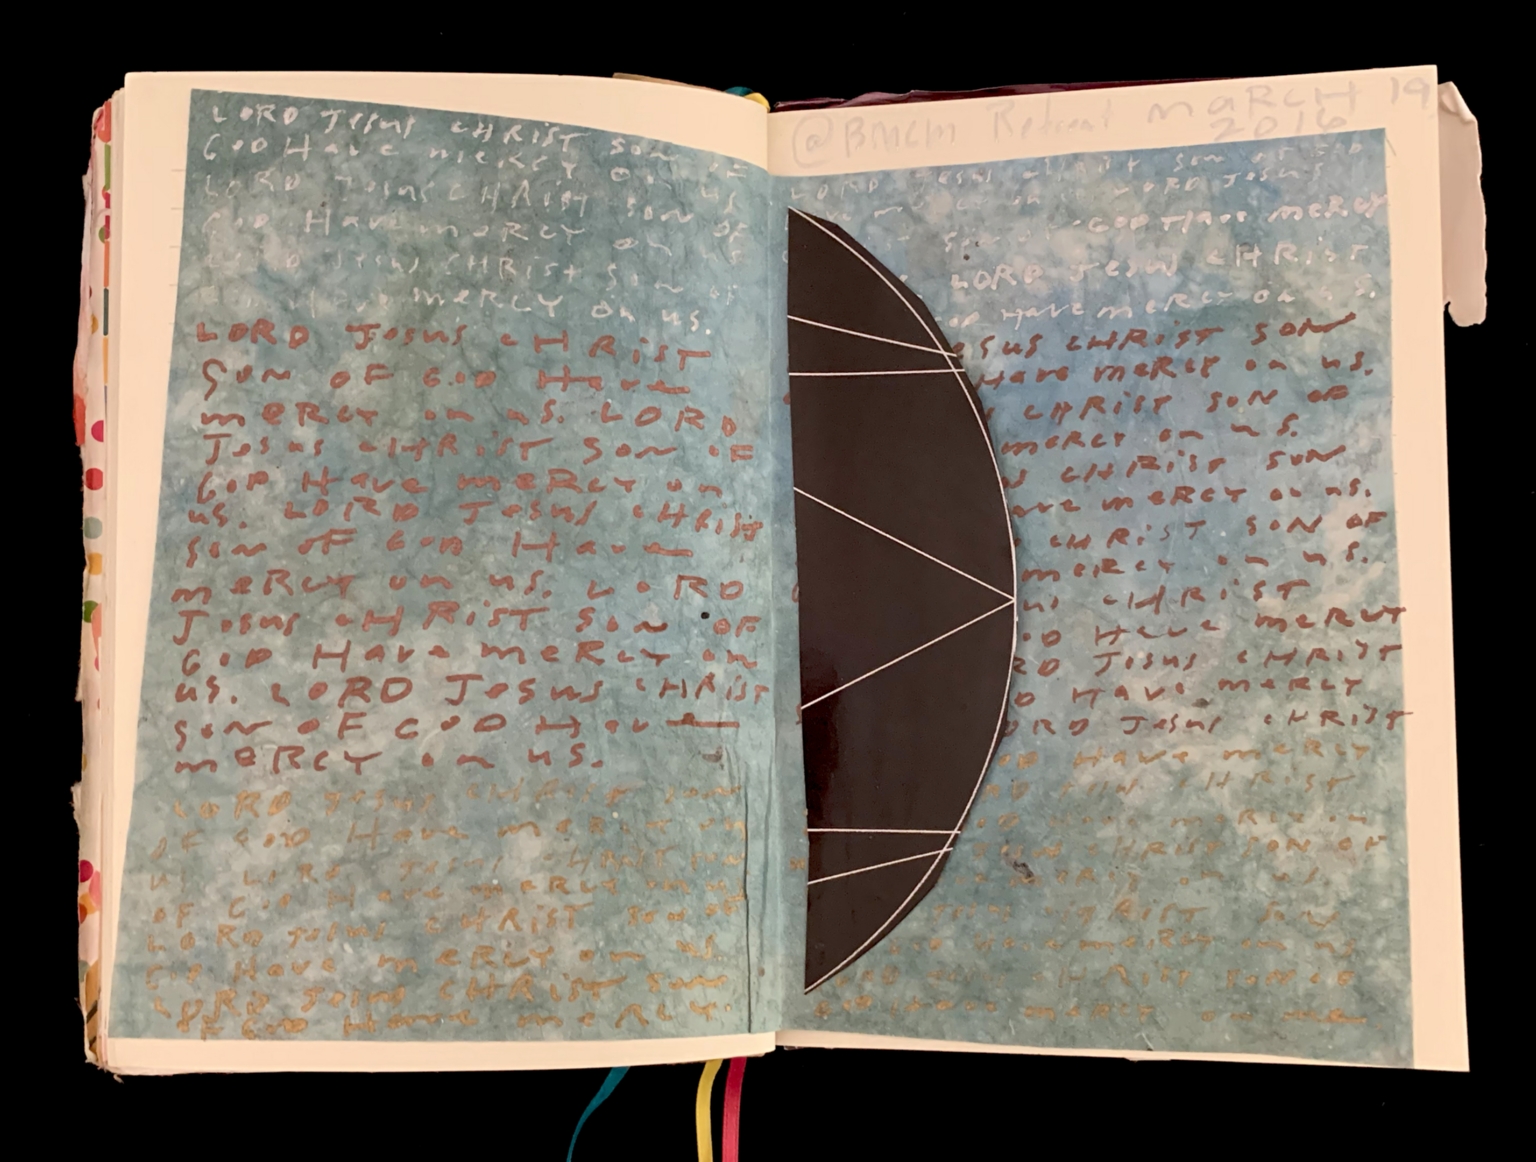 LORD Jesus CHRIST SON OF
GOD Have meRcy on us
LORD Jesus CHRIST SON OF
GOD Have meRCY on us
LORD Jesus CHRIST SON OF
Have meRCY on us.
LORD Jesus CHRiST
Son OF GOD Have
meRCY on us. LORD
Jesus CHRiST SON OF
GOD Have meRCY on
us. LORD Jesus CHRiST
son OF GOD Have
meRCY on us. LORD
Jesus CHRiST Son OF
GOD Have meRCY on
us. LORD Jesus CHRiST
son OF GOD Have
meRCY on us.
LORD Jesus CHRiST son
OF GOD Have meRCY on
us LORD Jesus CHRiST son
OF GOD Have meRCY on us
LORD Jesus CHRiST son OF
GOD Have meRCY on us.
LORD Jesus CHRiST son
OF GOD Have meRCY.
@BMCM Retreat maRCH 19
2016
LORD Jesus Christ son OF GOD
meRCY on us LORD Jesus
son OF GOD Have meRCY
LORD Jesus CHRiST
GOD Have meRCY on us.
esus CHRiST SON
Have meRCY on us.
CHRiST SON OF
meRCY on us.
s CHRiST SON
ave meRCY on us.
CHRiST SON OF
meRCY on us.
us CHRiST
OD Have meRCY
RD Jesus CHRiST
D Have meRCY
ORD Jesus CHRiST
OD Have meRCY
CHRiST
Have meRCY on
CHRiST SON OF
meRCY on us
CHRiST Son
Have meRCY on us
CHRiST SON OF
GOD Have meRCY on me